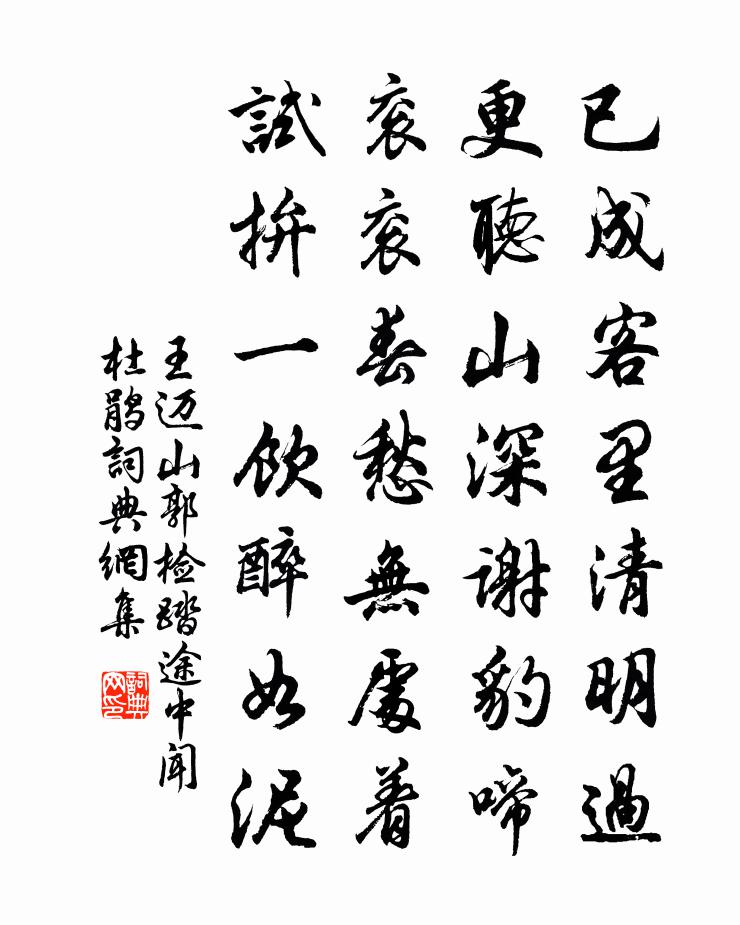 已成客里清明過
更聽山深謝豹啼
衮衮春愁無處着
試拚一飲醉如泥
王迈山郭检踏途中闻
杜鹃詞典網集
詞典网印